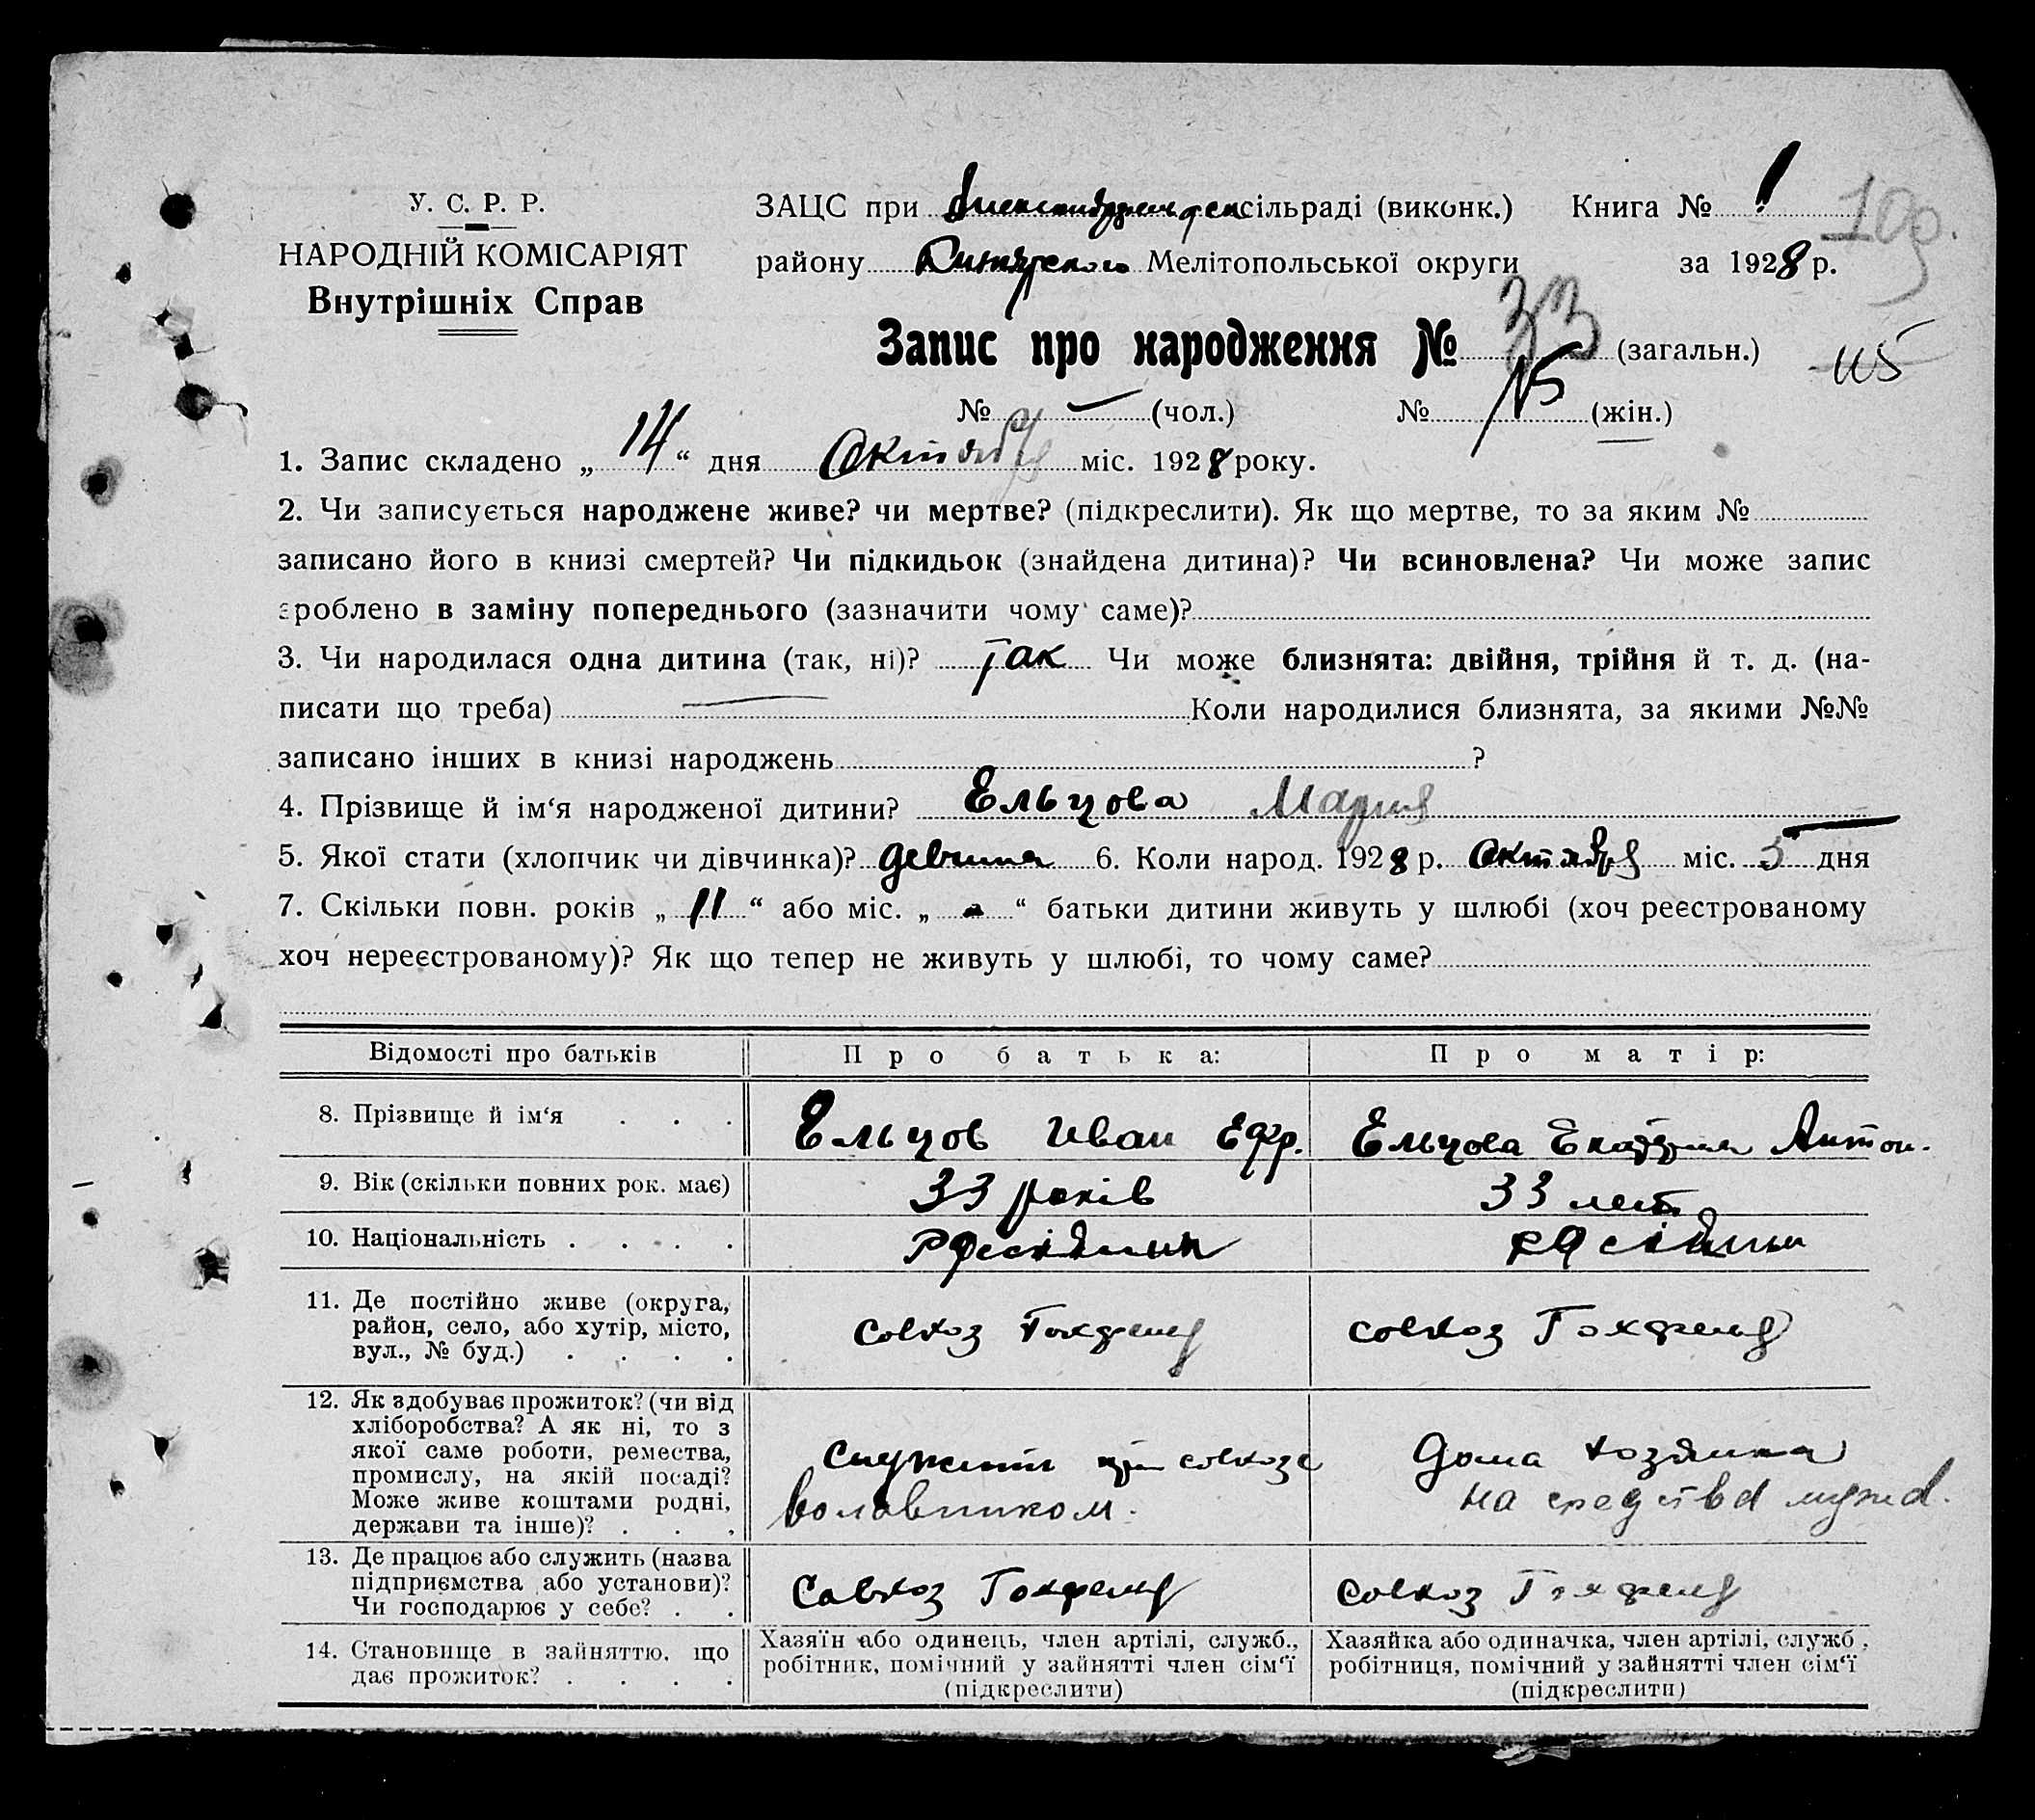 У. С. Р. Р.
НАРОДНІЙ КОМІСАРІЯТ
Внутрішніх Справ
ЗАЦС при сільраді (виконк.) Книга № 1
109.
району Мелітопольської округи за 1928 р.
Запис про народження № 33 (загальн.)
115
№ — (чол.) № 15 (жін.)
1. Запис складено „ 14 “ дня Октября міс. 1928 року.
2. Чи записується народжене живе? чи мертве? (підкреслити). Як що мертве, то за яким №
записано його в книзі смертей? Чи підкидьок (знайдена дитина)? Чи всиновлена? Чи може запис
зроблено в заміну попереднього (зазначити чому саме)?
3. Чи народилася одна дитина (так, ні)? Так Чи може близнята: двійня, трійня й т. д. (на-
писати що треба) — Коли народилися близнята, за якими №№
записано інших в книзі народжень ?
4. Прізвище й ім‘я народженої дитини? Ельцова Мария
5. Якої стати (хлопчик чи дівчинка)? 6. Коли народ. 1928 р. Октября міс. 5 дня
7. Скільки повн. років „ 11 “ або міс. „ - “ батьки дитини живуть у шлюбі (хоч реєстрованому
хоч нереєстрованому)? Як що тепер не живуть у шлюбі, то чому саме?
Відомості про батьків Про батька: Про матір:
8. Прізвище й ім‘я . . . Ельцов Иван Ефр. Ельцова Екатерина Антон.
9. Вік (скільки повних рок. має) 33 років 33 лет
10. Національність . . . .
11. Де постійно живе (округа,
район, село, або хутір, місто,
вул., № буд.) . . . .
совхоз Гохфельд совхоз Гохфельд
12. Як здобуває прожиток? (чи від
хліборобства? А як ні, то з
якої саме роботи, ремества,
промислу, на якій посаді?
Може живе коштами родні,
держави та інше)? . . .
Служит при совхозе
Дома хозяйка
на средства мужа.
13. Де працює або служить (назва
підприємства або установи)?
Чи господарює у себе? . .
Совхоз Гохфельд Совхоз Гохфельд
14. Становище в зайняттю, що
дає прожиток? . . . .
Хазяїн або одинець, член артілі, служб.,
робітник, помічний у зайнятті член сім‘ї
(підкреслити)
Хазяйка або одиначка, член артілі, служб.,
робітниця, помічний у зайнятті член сім‘ї
(підкреслити)